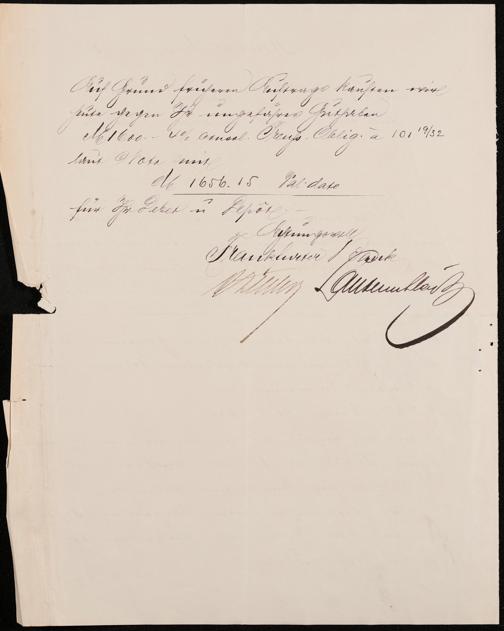 Auf Grund früheren Auftrags kauften wir
heute gegen Ihr ungefähres Guthaben
M 1600.- 4% consol. Preuss. Oblig. à 101 19/32
laut Nota mit
M 1656.15 Val. dato
für Ihr Debet u Depôt. -
Achtungsvoll
Frankfurter